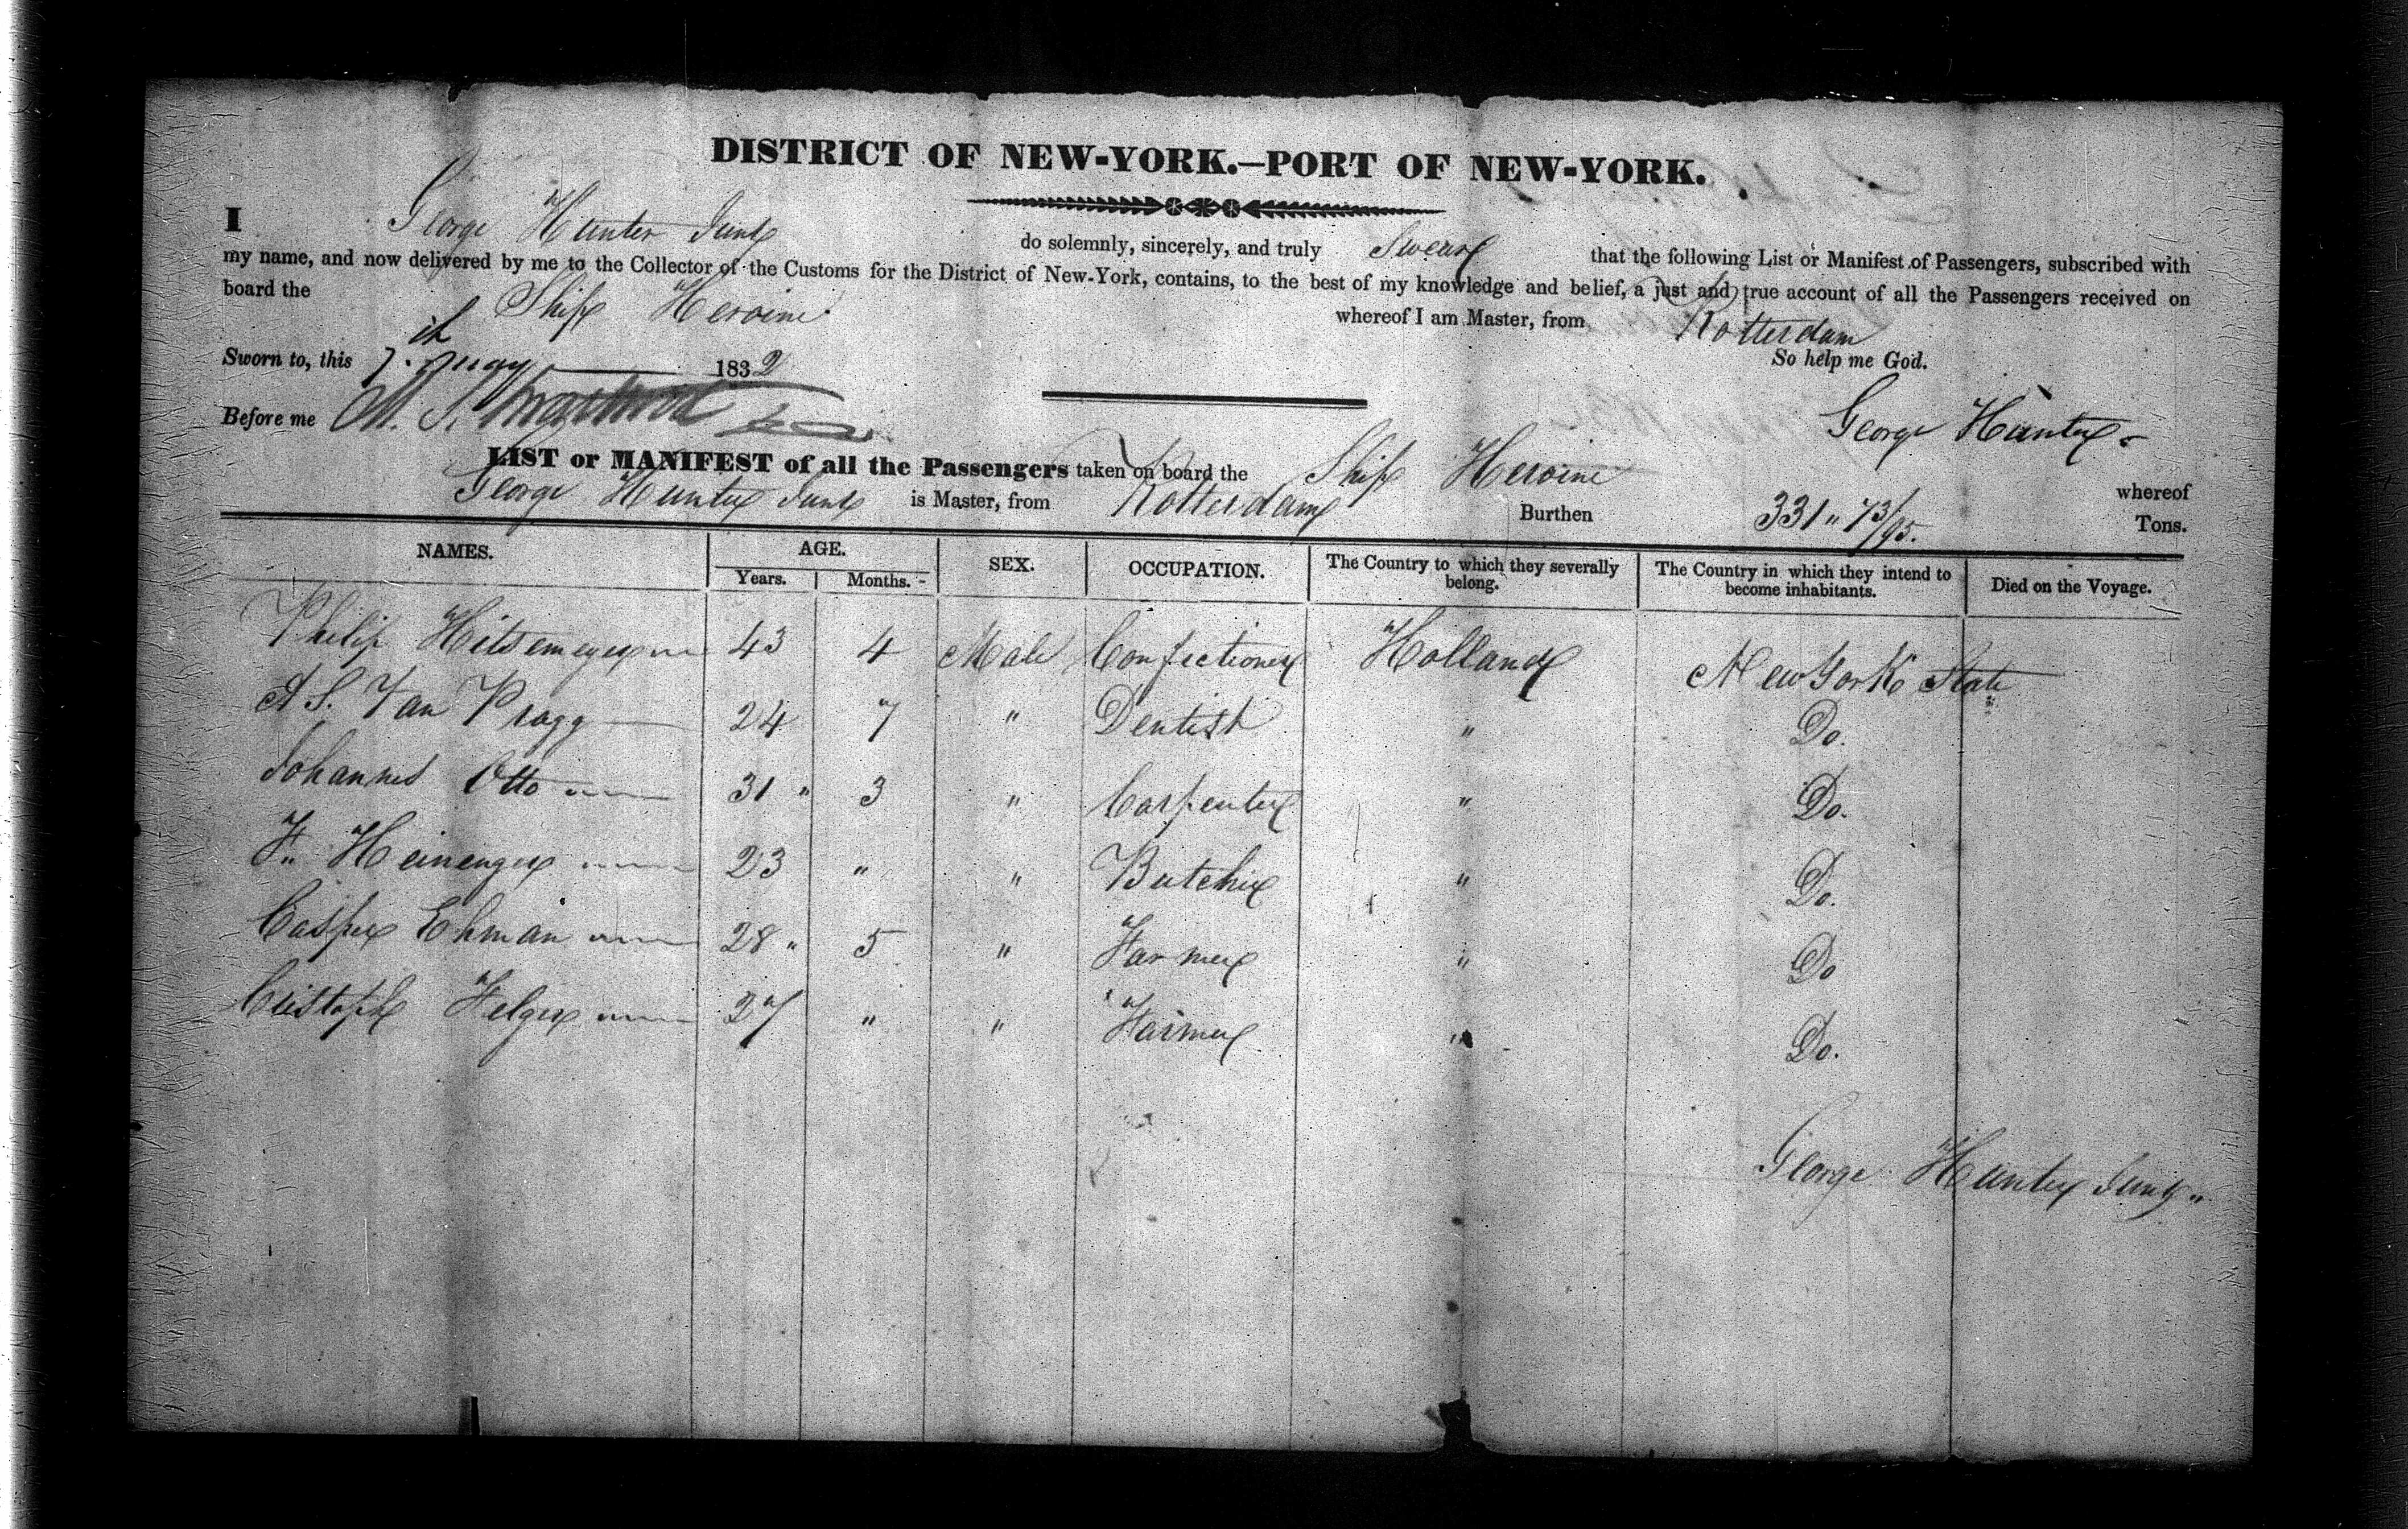 DISTRICT OF NEW-YORK.—PORT OF NEW-YORK.
I George Hunter Junr do solemnly, sincerely, and truly Swear that the following List or Manifest of Passengers, subscribed with
my name, and now delivered by me to the Collector of the Customs for the District of New-York, contains, to the best of my knowledge and belief, a just and true account of all the Passengers received on
board the Ship Heroine whereof I am Master, from Rotterdam
Sworn to, this 7th May 1832 So help me God.
Before me George Hunter
LIST or MANIFEST of all the Passengers taken on board the Ship Heroine whereof
George Hunter Junr is Master, from Rotterdam Burthen 331 " 73/95. Tons.
NAMES. AGE. SEX. OCCUPATION. The Country to which they severally belong. The Country in which they intend to become inhabitants. Died on the Voyage.
Years. Months.
Philip Hitsemeyer 43 4 Male Confectioner Holland New York State
A S. Van Pragg 24 7 " Dentist " Do.
Johannes Otto 31 " 3 " Carpenter " Do.
F. 23 " " Butcher " Do.
Casper Ehman 28 " 5 " Farmer " Do
Cristoph Felger 27 " " Farmer " Do.
George Hunter Junr "